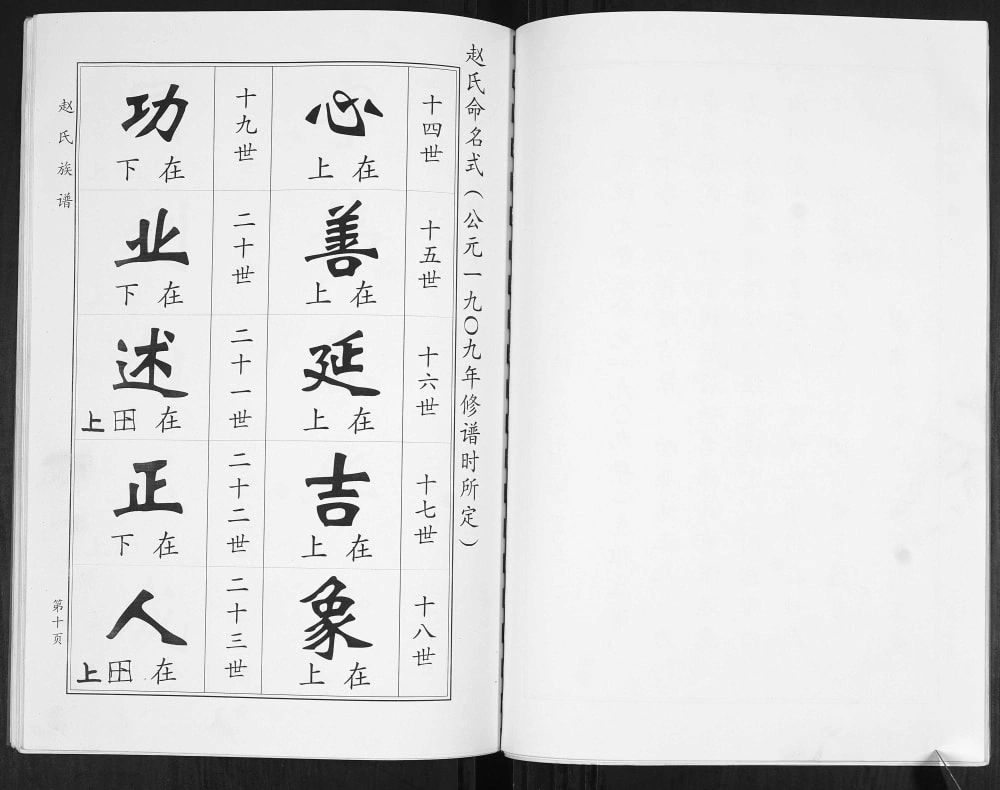 赵氏命名式（公元一九〇九年修谱时所定）
十四世
心
在上
十五世
善
在上
十六世
延
在上
十七世
吉
在上
十八世
象
在上
十九世
功
在下
二十世
业
在下
二十一世
述
在上
二十二世
正
在下
二十三世
人
在上
赵氏族谱
第十页